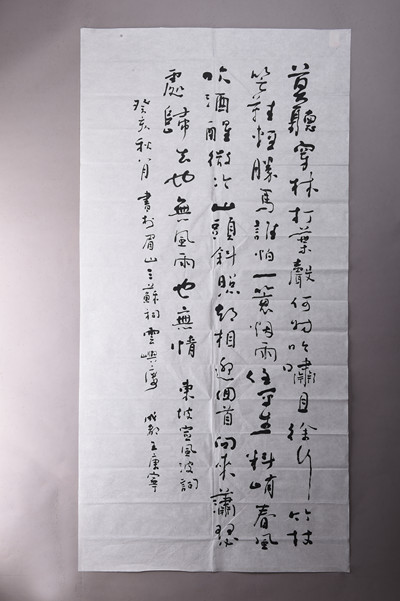 莫聽穿林打葉聲何妨吟嘯且徐行竹杖
芒鞋輕勝馬誰怕一蓑烟雨任平生料峭春風
吹酒醒微冷山頭斜照却相迎回首向來蕭瑟
處歸去也無風雨也無情 東坡定風波詞
癸亥秋八月書於眉山三蘇祠雲嶼樓 成都王康寧